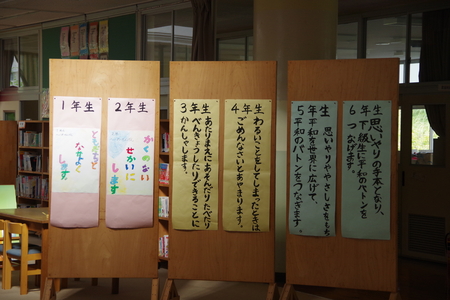 1年生
ともだちと
なかよく
します
2年生
かくのない
せかいに
します
3年生
あたりまえにあそんだりたべたり
べんきょうしたりできることに
かんしゃします。
4年生
わるいことをしてしまったときは
ごめんなさいとあやまります。
5年生
思いやりややさしさをもち
平和を世界に広げて、
平和のバトンをつなぎます。
6年生
思いやりの手本となり、
下級生に平和のバトンを
つなげます。